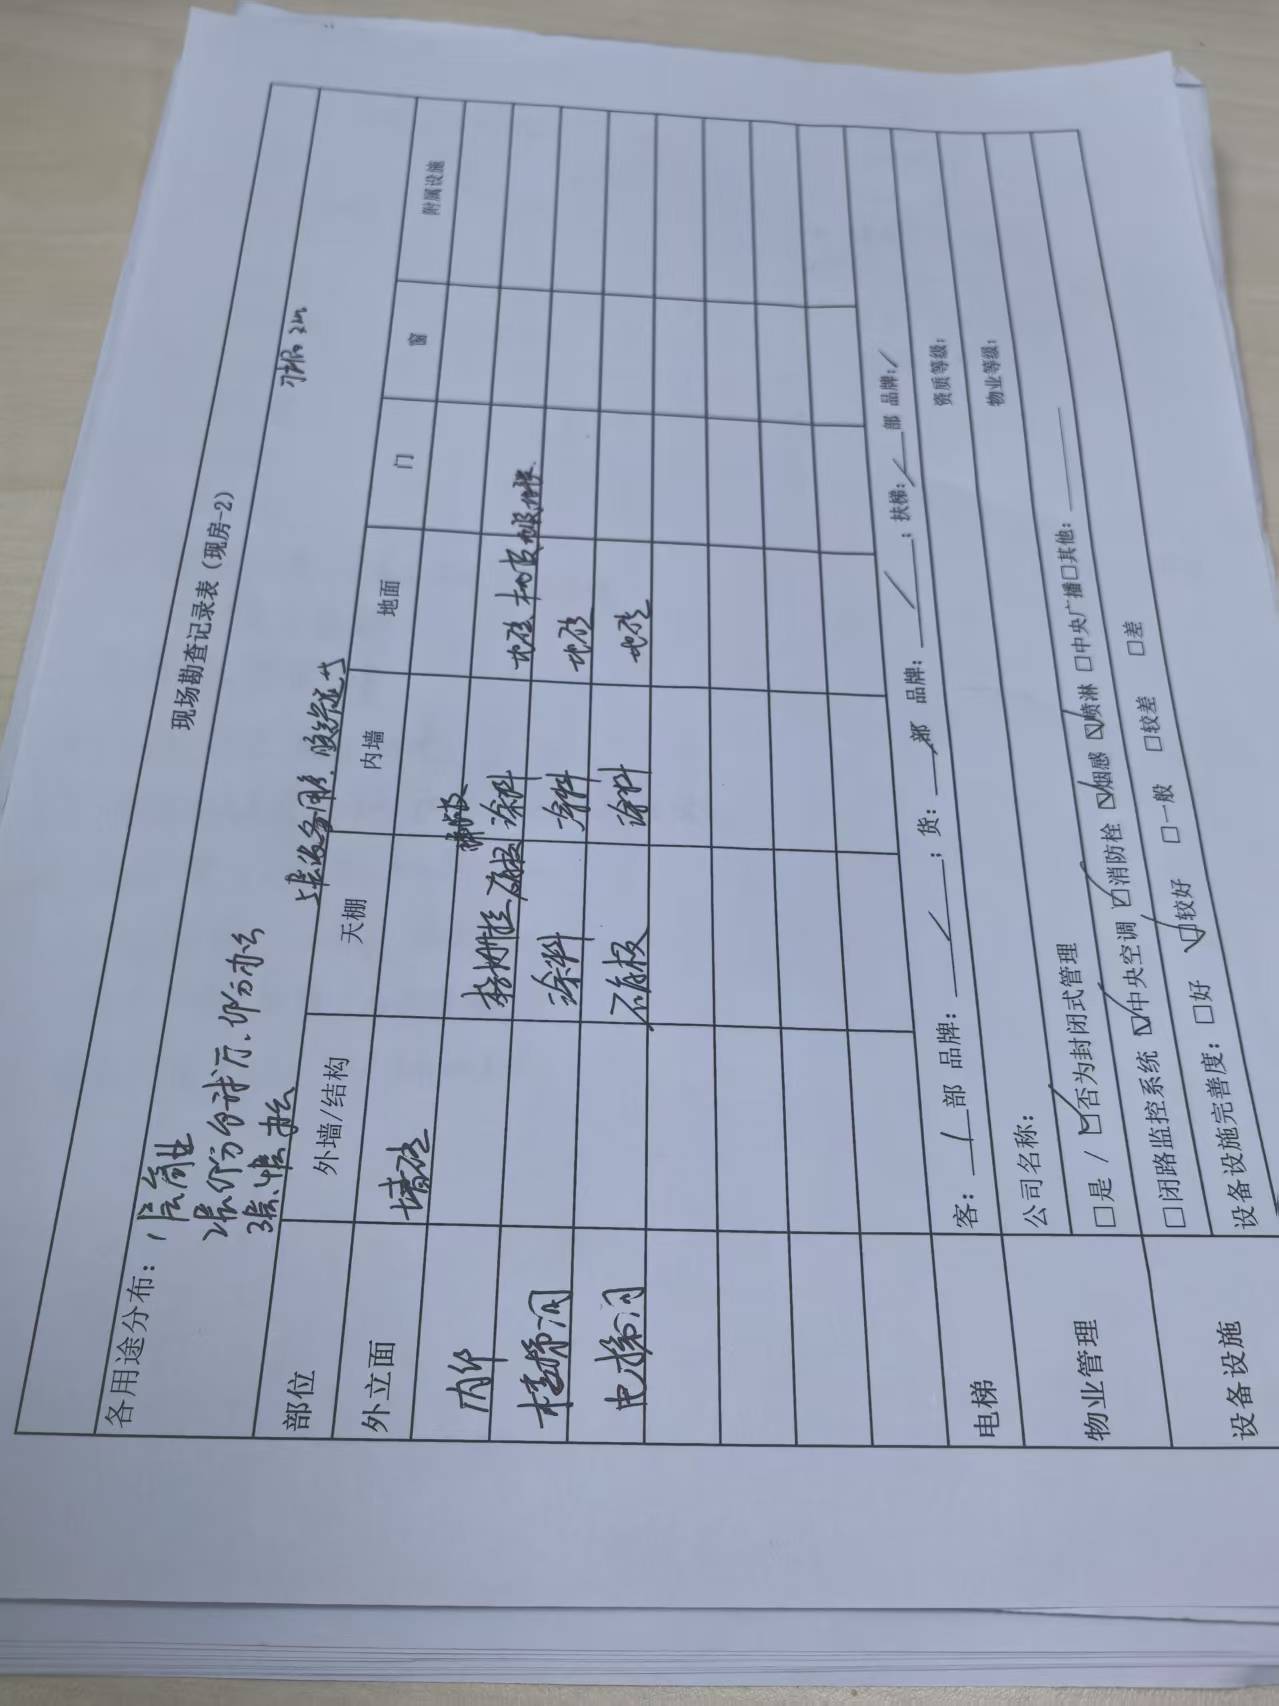 现场勘查记录表（现房-2）
各用途分布：1层商业
2层部分餐厅、部分办公
3层 办公
部位 外墙/结构 天棚 内墙 地面 门 窗 附属设施
外立面 墙砖
内部 石膏板 涂料 地砖
楼梯间 涂料 涂料 地砖
电梯间 石膏板 涂料 地砖
电梯 客：1部 品牌：／；货：／部 品牌：／；扶梯：／部 品牌：／
物业管理 公司名称： 资质等级：
□是 / ☑否为封闭式管理 物业等级：
设备设施 □闭路监控系统 ☑中央空调 ☑消防栓 ☑烟感 ☑喷淋 □中央广播□其他：
设备设施完善度：□好 ☑较好 □一般 □较差 □差